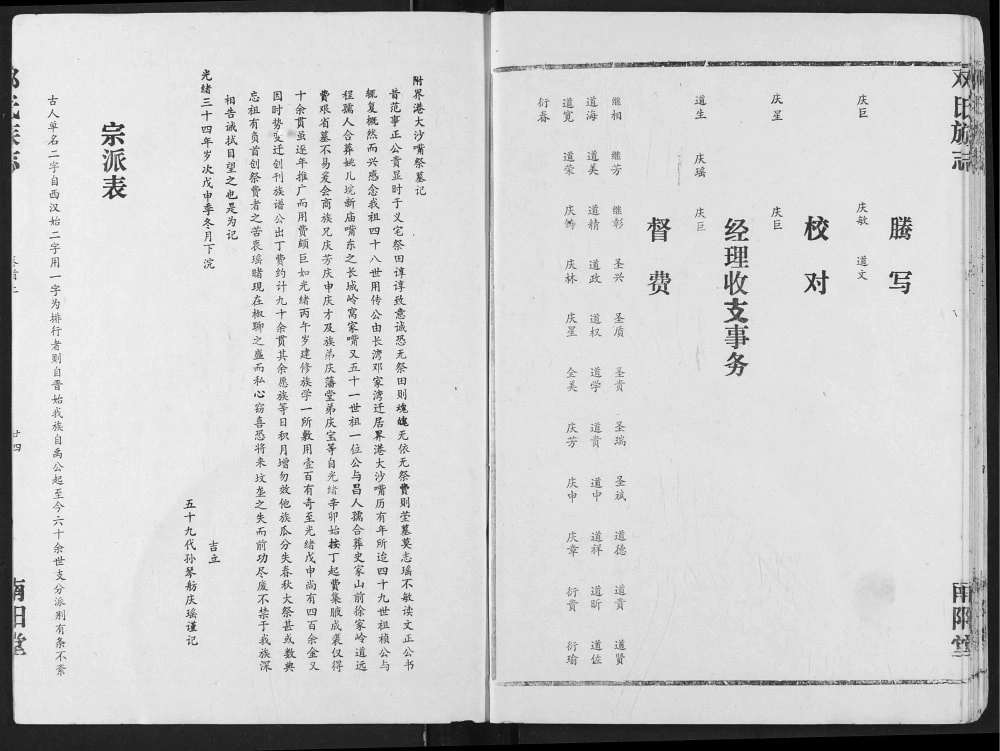 邓氏族志
南阳堂
腾写
庆巨 庆敏 道文
校对
庆星 庆巨
经理收支事务
道生 庆瑶 庆巨
督费
继相 继芳 继彰 圣兴 圣质 圣贵 圣瑞 圣斌 道德 道贵 道贤
道海 道美 道精 道政 道权 道学 道贵 道中 道祥 道昕 道佐
道宽 道荣 庆林 庆星 全美 庆芳 庆申 庆章 衍贵 衍瑜
衍春
附界港大沙嘴祭墓记
昔范事正公贵显时于义宅祭田谆谆致意诚恐无祭田则魂魄无依无祭费则茔墓莫志瑶不敏读文正公书
辄复概然而兴感念我祖四十八世用传公由长湾邓家湾迁居界港大沙嘴历有年所迨四十九世祖祯公与
程孺人合葬姚儿垸新庙嘴东之长城岭窝家嘴又五十一世祖一位公与昌人孺合葬史家山前徐家岭道远
费艰省墓不易爰会商族兄庆芳庆申庆才及族弟庆藩堂弟庆宝等自光绪辛卯始按丁起费集腋成裘仅得
十余贯虽逐年推广而用费颇巨如光绪丙午岁建修族学一所敷用壹百有奇至光绪戊申尚有四百余金又
因时势变迁创刊族谱公出丁费约计九十余贯其余愿族等日积月增勿效他族瓜分失春秋大祭甚或数典
忘祖有负首创祭费者之苦衷瑶睹现在椒聊之盛而私心窃喜恐将来坟垄之失而前功尽废不禁于我族深
相告诫拭目望之也是为记
光绪三十四年岁次戊申季冬月下浣 吉立
五十九代孙琴舫庆瑶谨记
宗派表
古人单名二字自西汉始二字用一字为排行者则自晋始我族自禹公起至今六十余世支分派别有条不紊
廿四
南阳堂